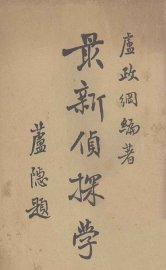 盧政綱編著
最新偵探学
蘆隱題